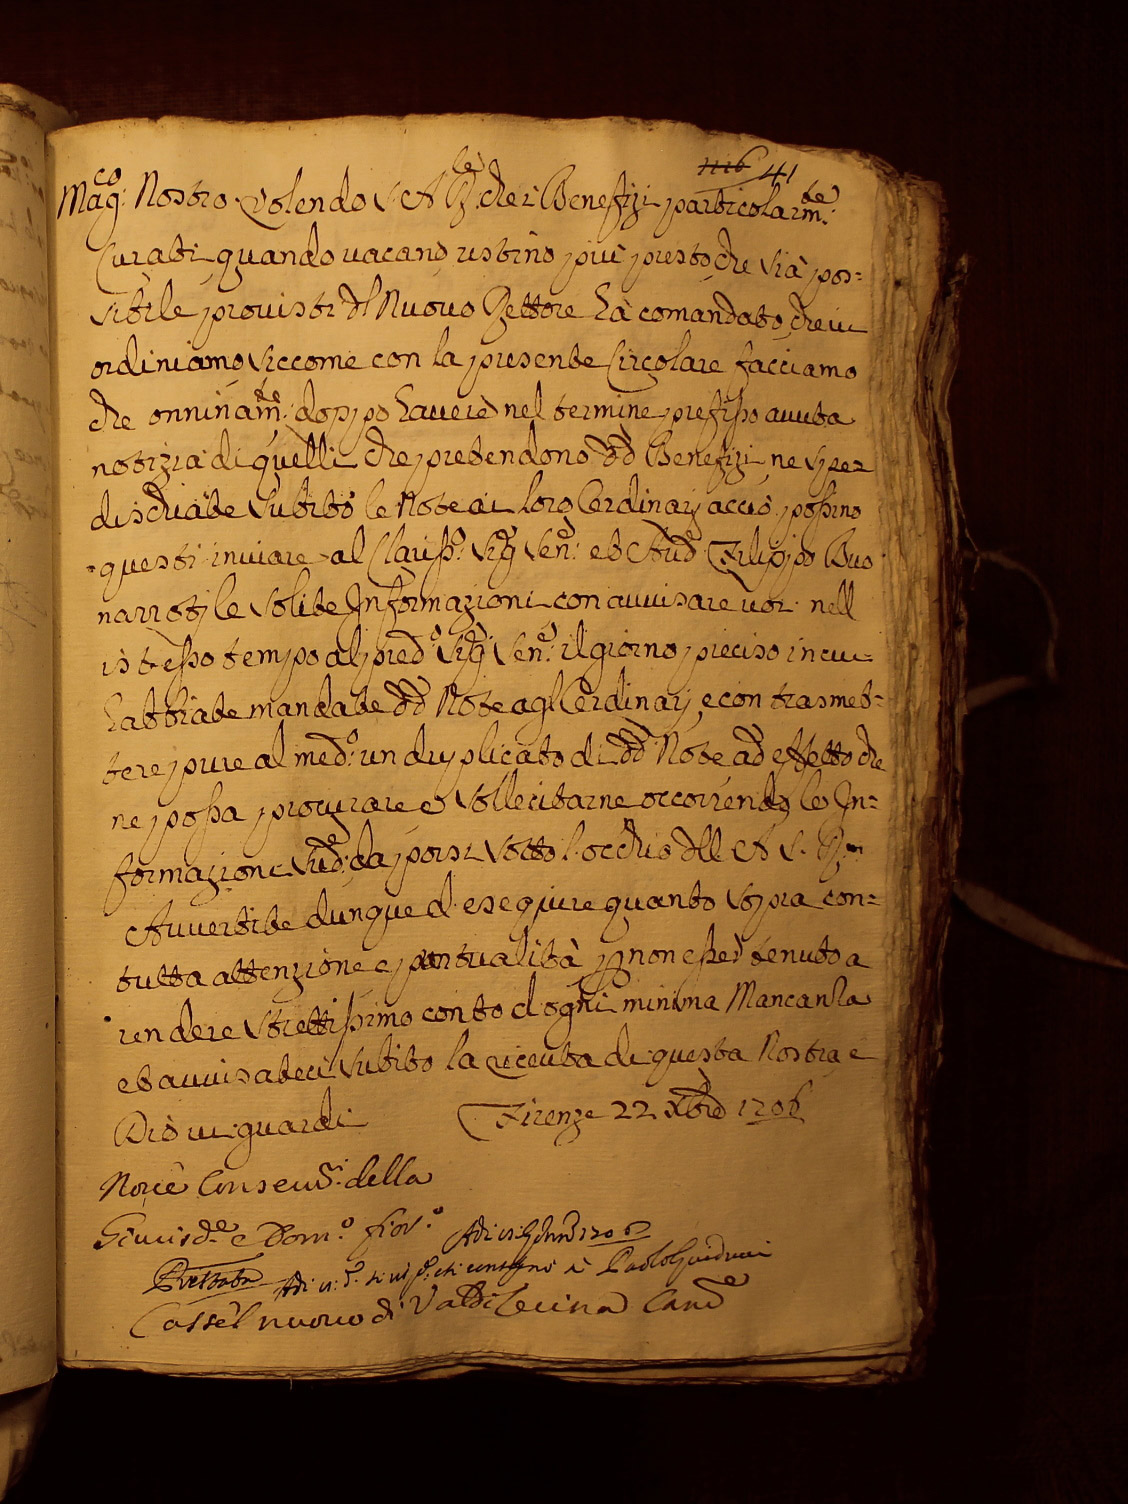 41
Mag:co Nostro. Volendo S. A. R.le che i Benefizi particolarm:te
Curati quando vacano restino più presto che sia pos=
sibile provisti dl Nuovo Rettore hà comandato, che vi
ordiniamo siccome con la presente Circolare facciamo
che onninam:te doppo havere nel termine prefisso avuta
notizia di quelli che pretendono dd Benefizi ne sper
dischiate subito le Note ai loro Ordinarj acciò possino
questi inviare al Clariss:o Sig Sen:e et Aud Filippo Buo
narroti le solite Informazioni con avvisare voi nell
istesso tempo al pred:o Sig Sen:e il giorno preciso in cui
habbiate mandate dd Note agl Ordinarj, e con trasmet=
tere pure al med:o un duplicato di dd Note ad effetto che
ne possa procurare e sollecitarne occorrendo le In=
formazione sud:e da porsi sotto l'occhio dll A. S. R.
Avvertite dunque d'eseguire quanto sopra con=
tutta attenzione e puntualità p non esser tenuto a
rendere strettissimo conto d'ogni minima Mancanza
et avvisateci subito la riceuta di questa Nostra e
Dio vi guardi Firenze 22 Xbre 1706
Noi Conserv:ri della
Giurisd:e e Dom:o Fior:o
Adi 1706
Paolo Guiducci
Castel nuovo di Val di Cecina Canc:e